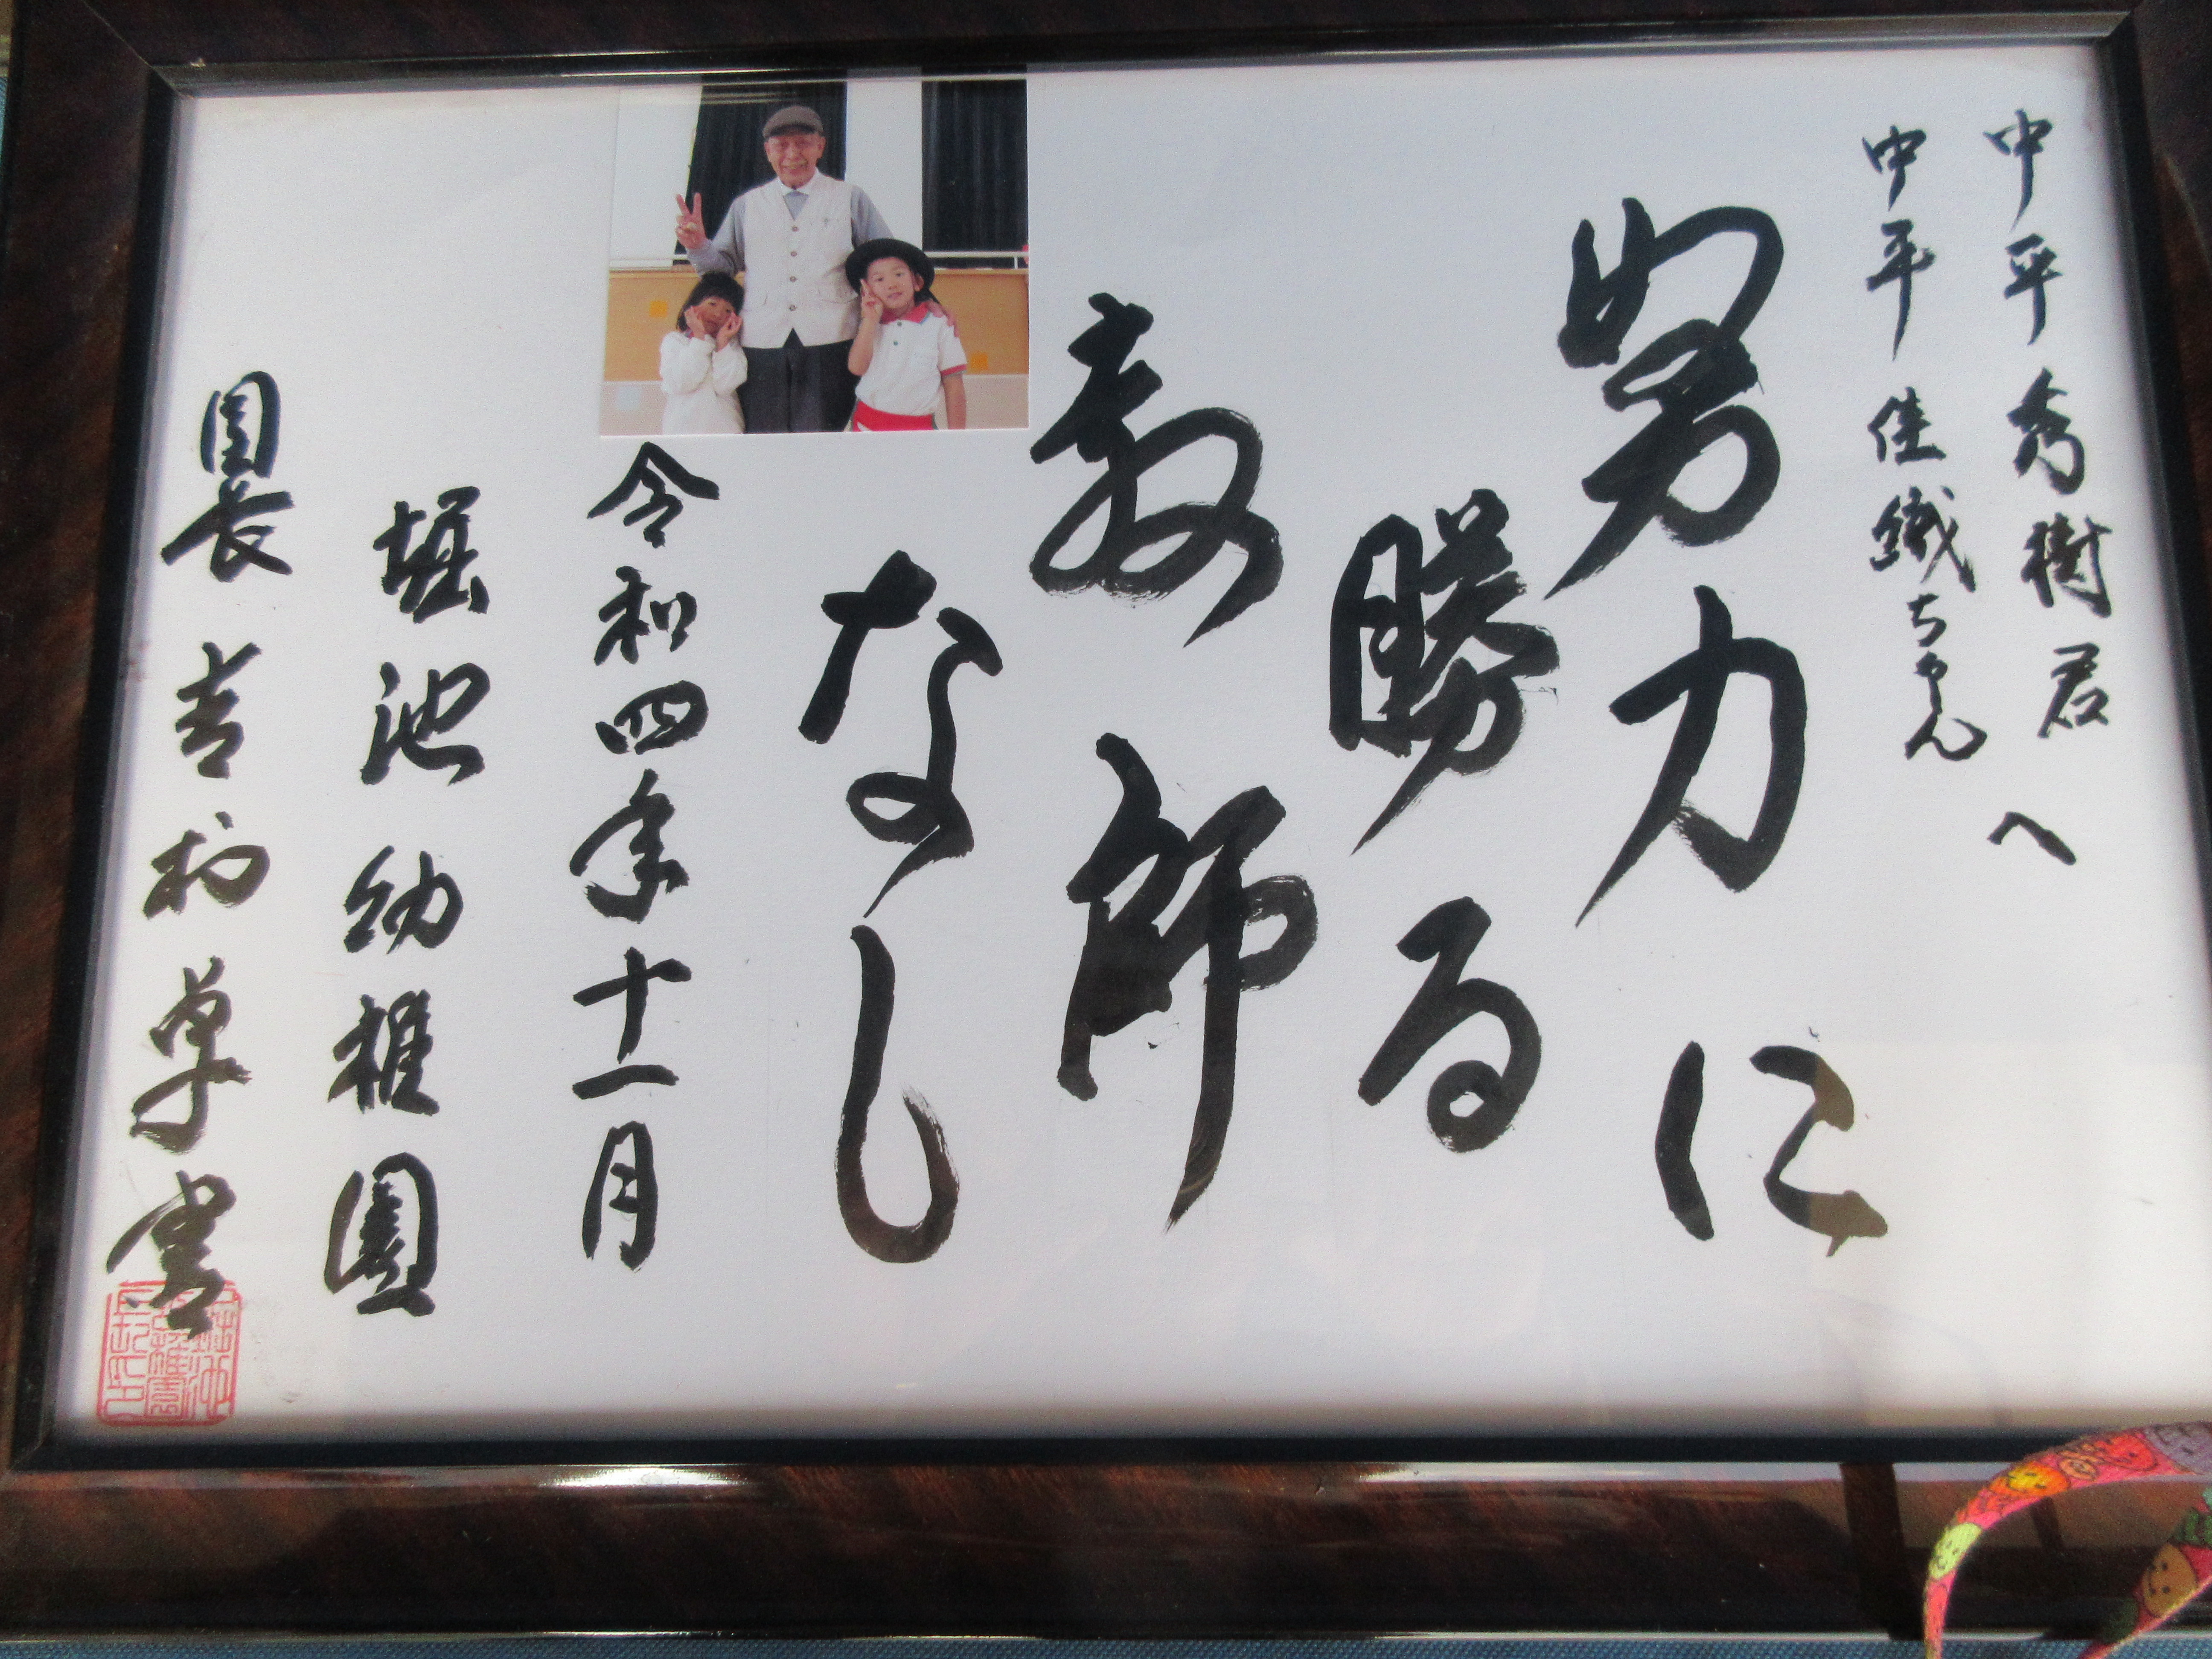 中平秀樹君へ
中平佳織ちゃん
努力に
勝る
教師
なし
令和四年十一月
堀池幼稚園
園長 吉村卓書